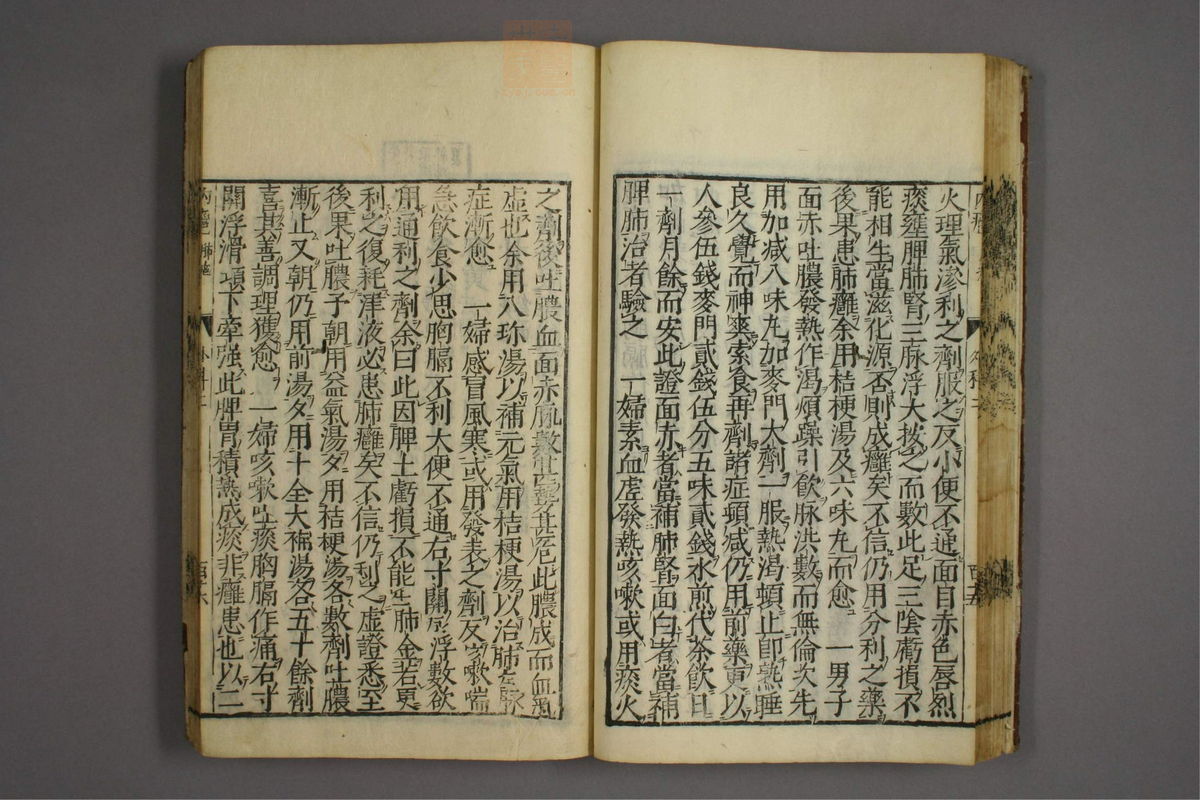 火理氣滲利之劑服之反小便不通面目赤色唇烈
痰壅脾肺腎三脉浮大按之而數此足三陰虧損不
能相生當滋化源否則成癰矣不信仍用分利之藥
後果患肺癰余用桔梗湯及六味丸而愈 一男子
面赤吐膿發熱作渴煩躁引飲脉洪數而無倫次先
用加减八味丸加麥門大劑一服熱渴頓止即熟睡
良久覺而神爽索食再劑諸症頓减仍用前藥更以
人參伍錢麥門貳錢伍分五味貳錢水煎代茶飲日
一劑月餘而安此證面赤者當補肺腎面白者當補
脾肺治者驗之 一婦素血虚發熱咳嗽或用痰火
之劑後吐膿血面赤脉數其勢甚危此膿成而血氣
虚也余用八珎湯以補元氣用桔梗湯以治肺症脉
症漸愈 一婦感冒風寒或用發表之劑反咳嗽喘
急飲食少思胸膈不利大便不通右寸關浮數欲
用通利之劑余曰此因脾土虧損不能生肺金若更
利之復耗津液必患肺癰矣不信仍利之虚證悉至
後果吐膿予朝用益氣湯夕用桔梗湯各數劑吐膿
漸止又朝仍用前湯夕用十全大補湯各五十餘劑
喜其善調理獲愈 一婦咳嗽吐痰胸膈作痛右寸
關浮滑項下牽強此脾胃積熱成痰非癰患也以二
外科二